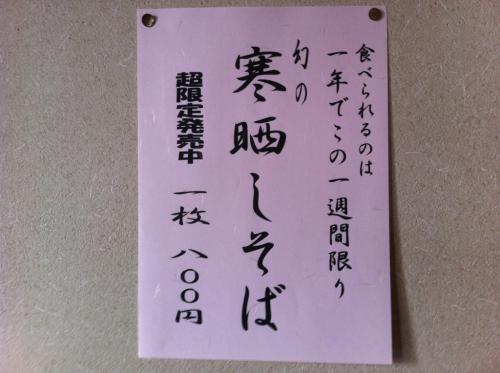 食べられるのは
一年でこの一週間限り
幻の
寒晒しそば
超限定発売中
一枚 八〇〇円